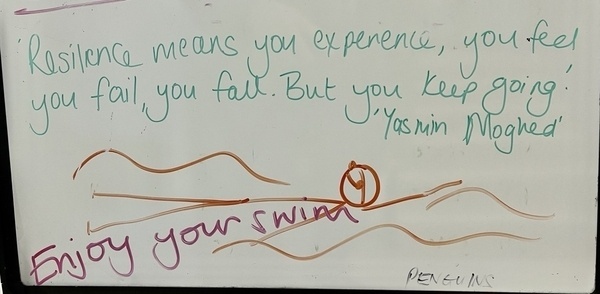 'Resilience means you experience, you feel
you fail, you fall. But you keep going.'
'Yasmin Moghed'
Enjoy your swim
PENGUINS